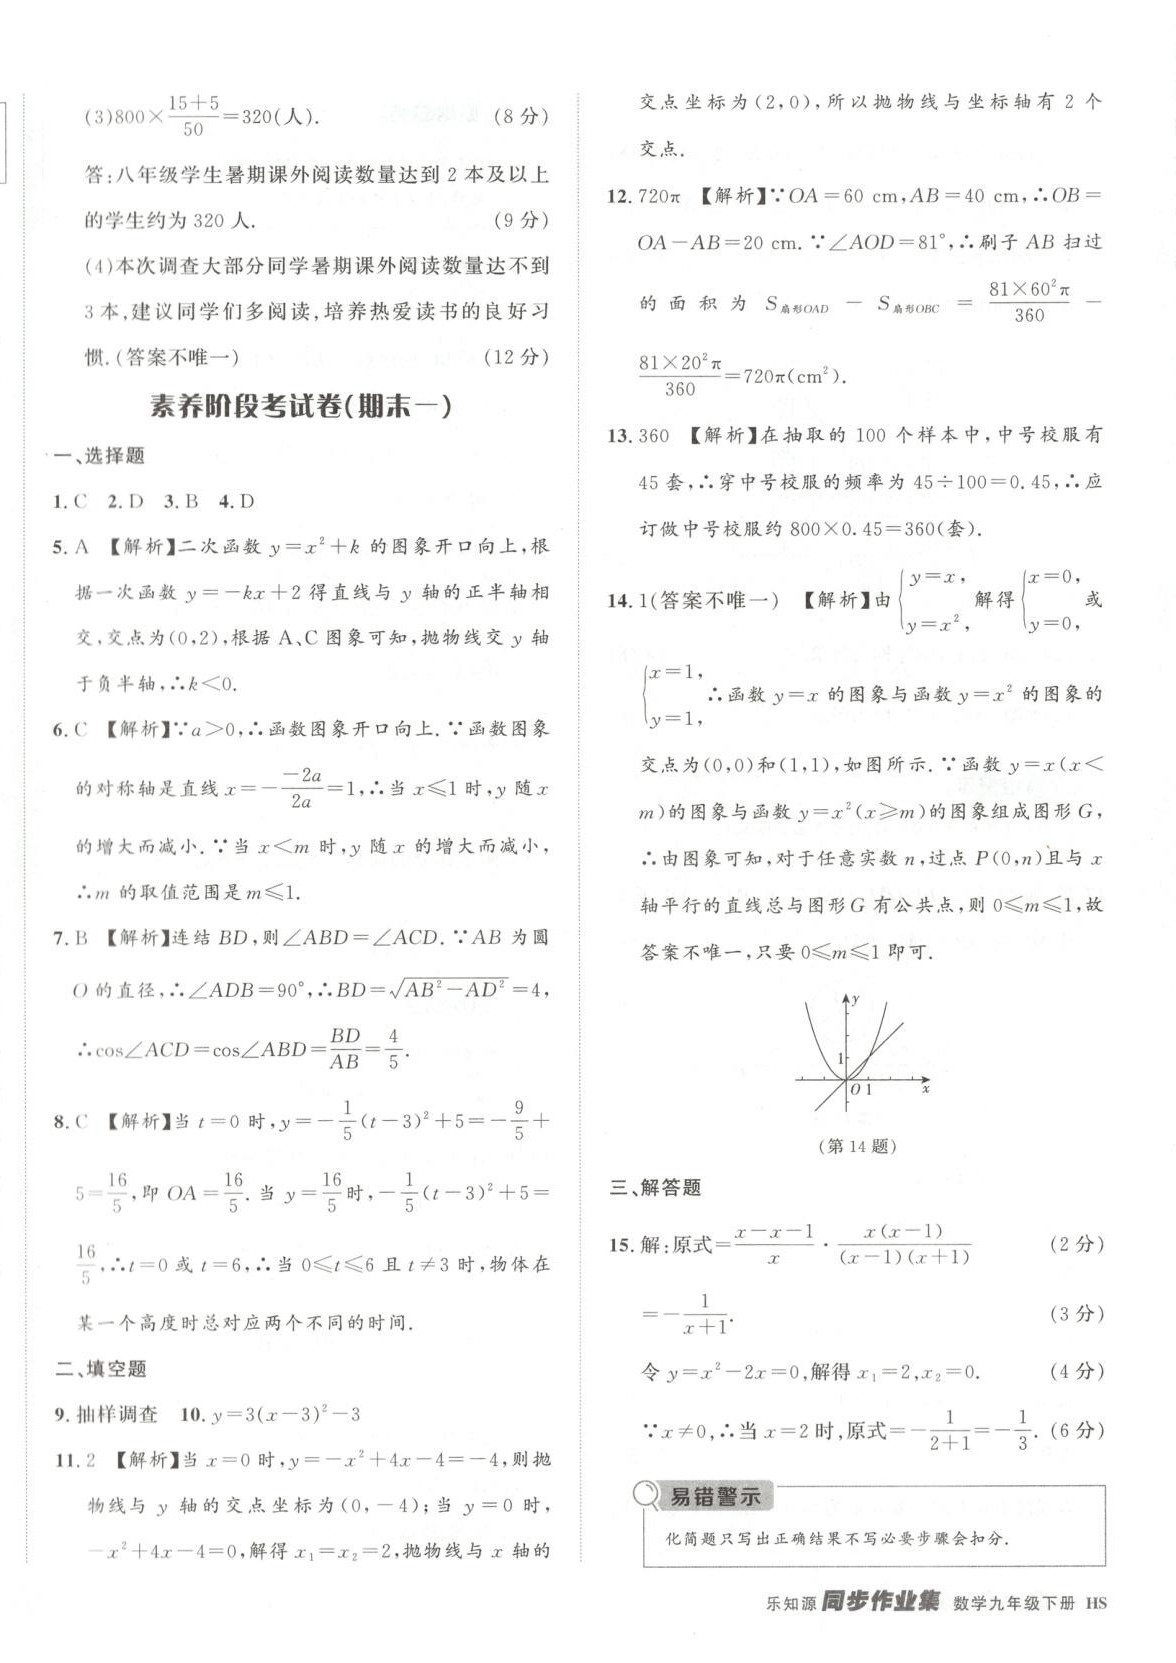 (3)800×\frac{15+5}{50}=320(人). (8分)
答:八年级学生暑期课外阅读数量达到2本及以上
的学生约为320人. (9分)
(4)本次调查大部分同学暑期课外阅读数量达不到
3本,建议同学们多阅读,培养热爱读书的良好习
惯.(答案不唯一) (12分)
素养阶段考试卷(期末一)
一、选择题
1.C 2.D 3.B 4.D
5.A 【解析】二次函数y=x²+k的图象开口向上,根
据一次函数y=-kx+2得直线与y轴的正半轴相
交,交点为(0,2),根据A、C图象可知,抛物线交y轴
于负半轴,∴k<0.
6.C 【解析】∵a>0,∴函数图象开口向上.∵函数图象
的对称轴是直线x=-\frac{-2a}{2a}=1,∴当x≤1时,y随x
的增大而减小.∵当x<m时,y随x的增大而减小,
∴m的取值范围是m≤1.
7.B 【解析】连结BD,则∠ABD=∠ACD.∵AB为圆
O的直径,∴∠ADB=90°,∴BD=\sqrt{AB²-AD²}=4,
∴cos∠ACD=cos∠ABD=\frac{BD}{AB}=\frac{4}{5}.
8.C 【解析】当t=0时,y=-\frac{1}{5}(t-3)²+5=-\frac{9}{5}+
5=\frac{16}{5},即OA=\frac{16}{5}.当y=\frac{16}{5}时,-\frac{1}{5}(t-3)²+5=
\frac{16}{5},∴t=0或t=6,∴当0≤t≤6且t≠3时,物体在
某一个高度时总对应两个不同的时间.
二、填空题
9.抽样调查 10.y=3(x-3)²-3
11.2 【解析】当x=0时,y=-x²+4x-4=-4,则抛
物线与y轴的交点坐标为(0,-4);当y=0时,
-x²+4x-4=0,解得x₁=x₂=2,抛物线与x轴的
交点坐标为(2,0),所以抛物线与坐标轴有2个
交点.
12.720π 【解析】∵OA=60 cm,AB=40 cm,∴OB=
OA-AB=20 cm.∵∠AOD=81°,∴刷子AB扫过
的面积为S扇形OAD-S扇形OBC=\frac{81×60²π}{360}-
\frac{81×20²π}{360}=720π(cm²).
13.360 【解析】在抽取的100个样本中,中号校服有
45套,∴穿中号校服的频率为45÷100=0.45,∴应
订做中号校服约800×0.45=360(套).
14.1(答案不唯一) 【解析】由{y=x, y=x², 解得{x=0, y=0, 或
{x=1, y=1, ∴函数y=x的图象与函数y=x²的图象的
交点为(0,0)和(1,1),如图所示.∵函数y=x(x<
m)的图象与函数y=x²(x≥m)的图象组成图形G,
∴由图象可知,对于任意实数n,过点P(0,n)且与x
轴平行的直线总与图形G有公共点,则0≤m≤1,故
答案不唯一,只要0≤m≤1即可.
y
1
O 1 x
(第14题)
三、解答题
15.解:原式=\frac{x-x-1}{x}·\frac{x(x-1)}{(x-1)(x+1)} (2分)
=-\frac{1}{x+1}. (3分)
令y=x²-2x=0,解得x₁=2,x₂=0. (4分)
∵x≠0,∴当x=2时,原式=-\frac{1}{2+1}=-\frac{1}{3}. (6分)
易错警示
化简题只写出正确结果不写必要步骤会扣分.
乐知源 同步作业集 数学九年级下册 HS